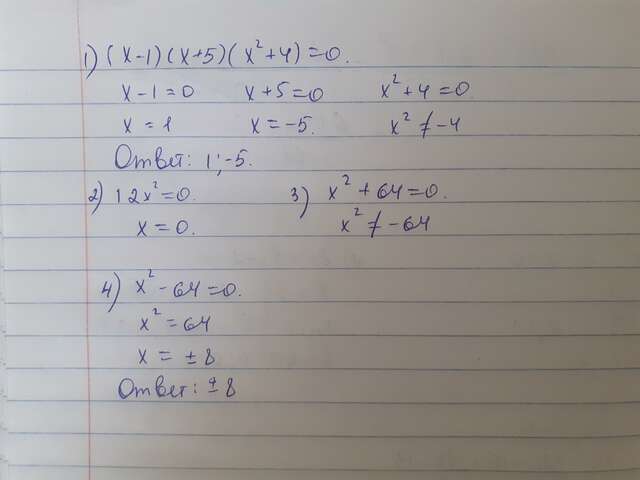 1) (x-1)(x+5)(x²+4)=0.
x-1=0 x+5=0 x²+4=0.
x=1 x=-5. x²≠-4
Ответ: 1;-5.
2) 12x²=0. 3) x²+64=0.
x=0. x²≠-64
4) x²-64=0.
x²=64
x=±8
Ответ: ±8